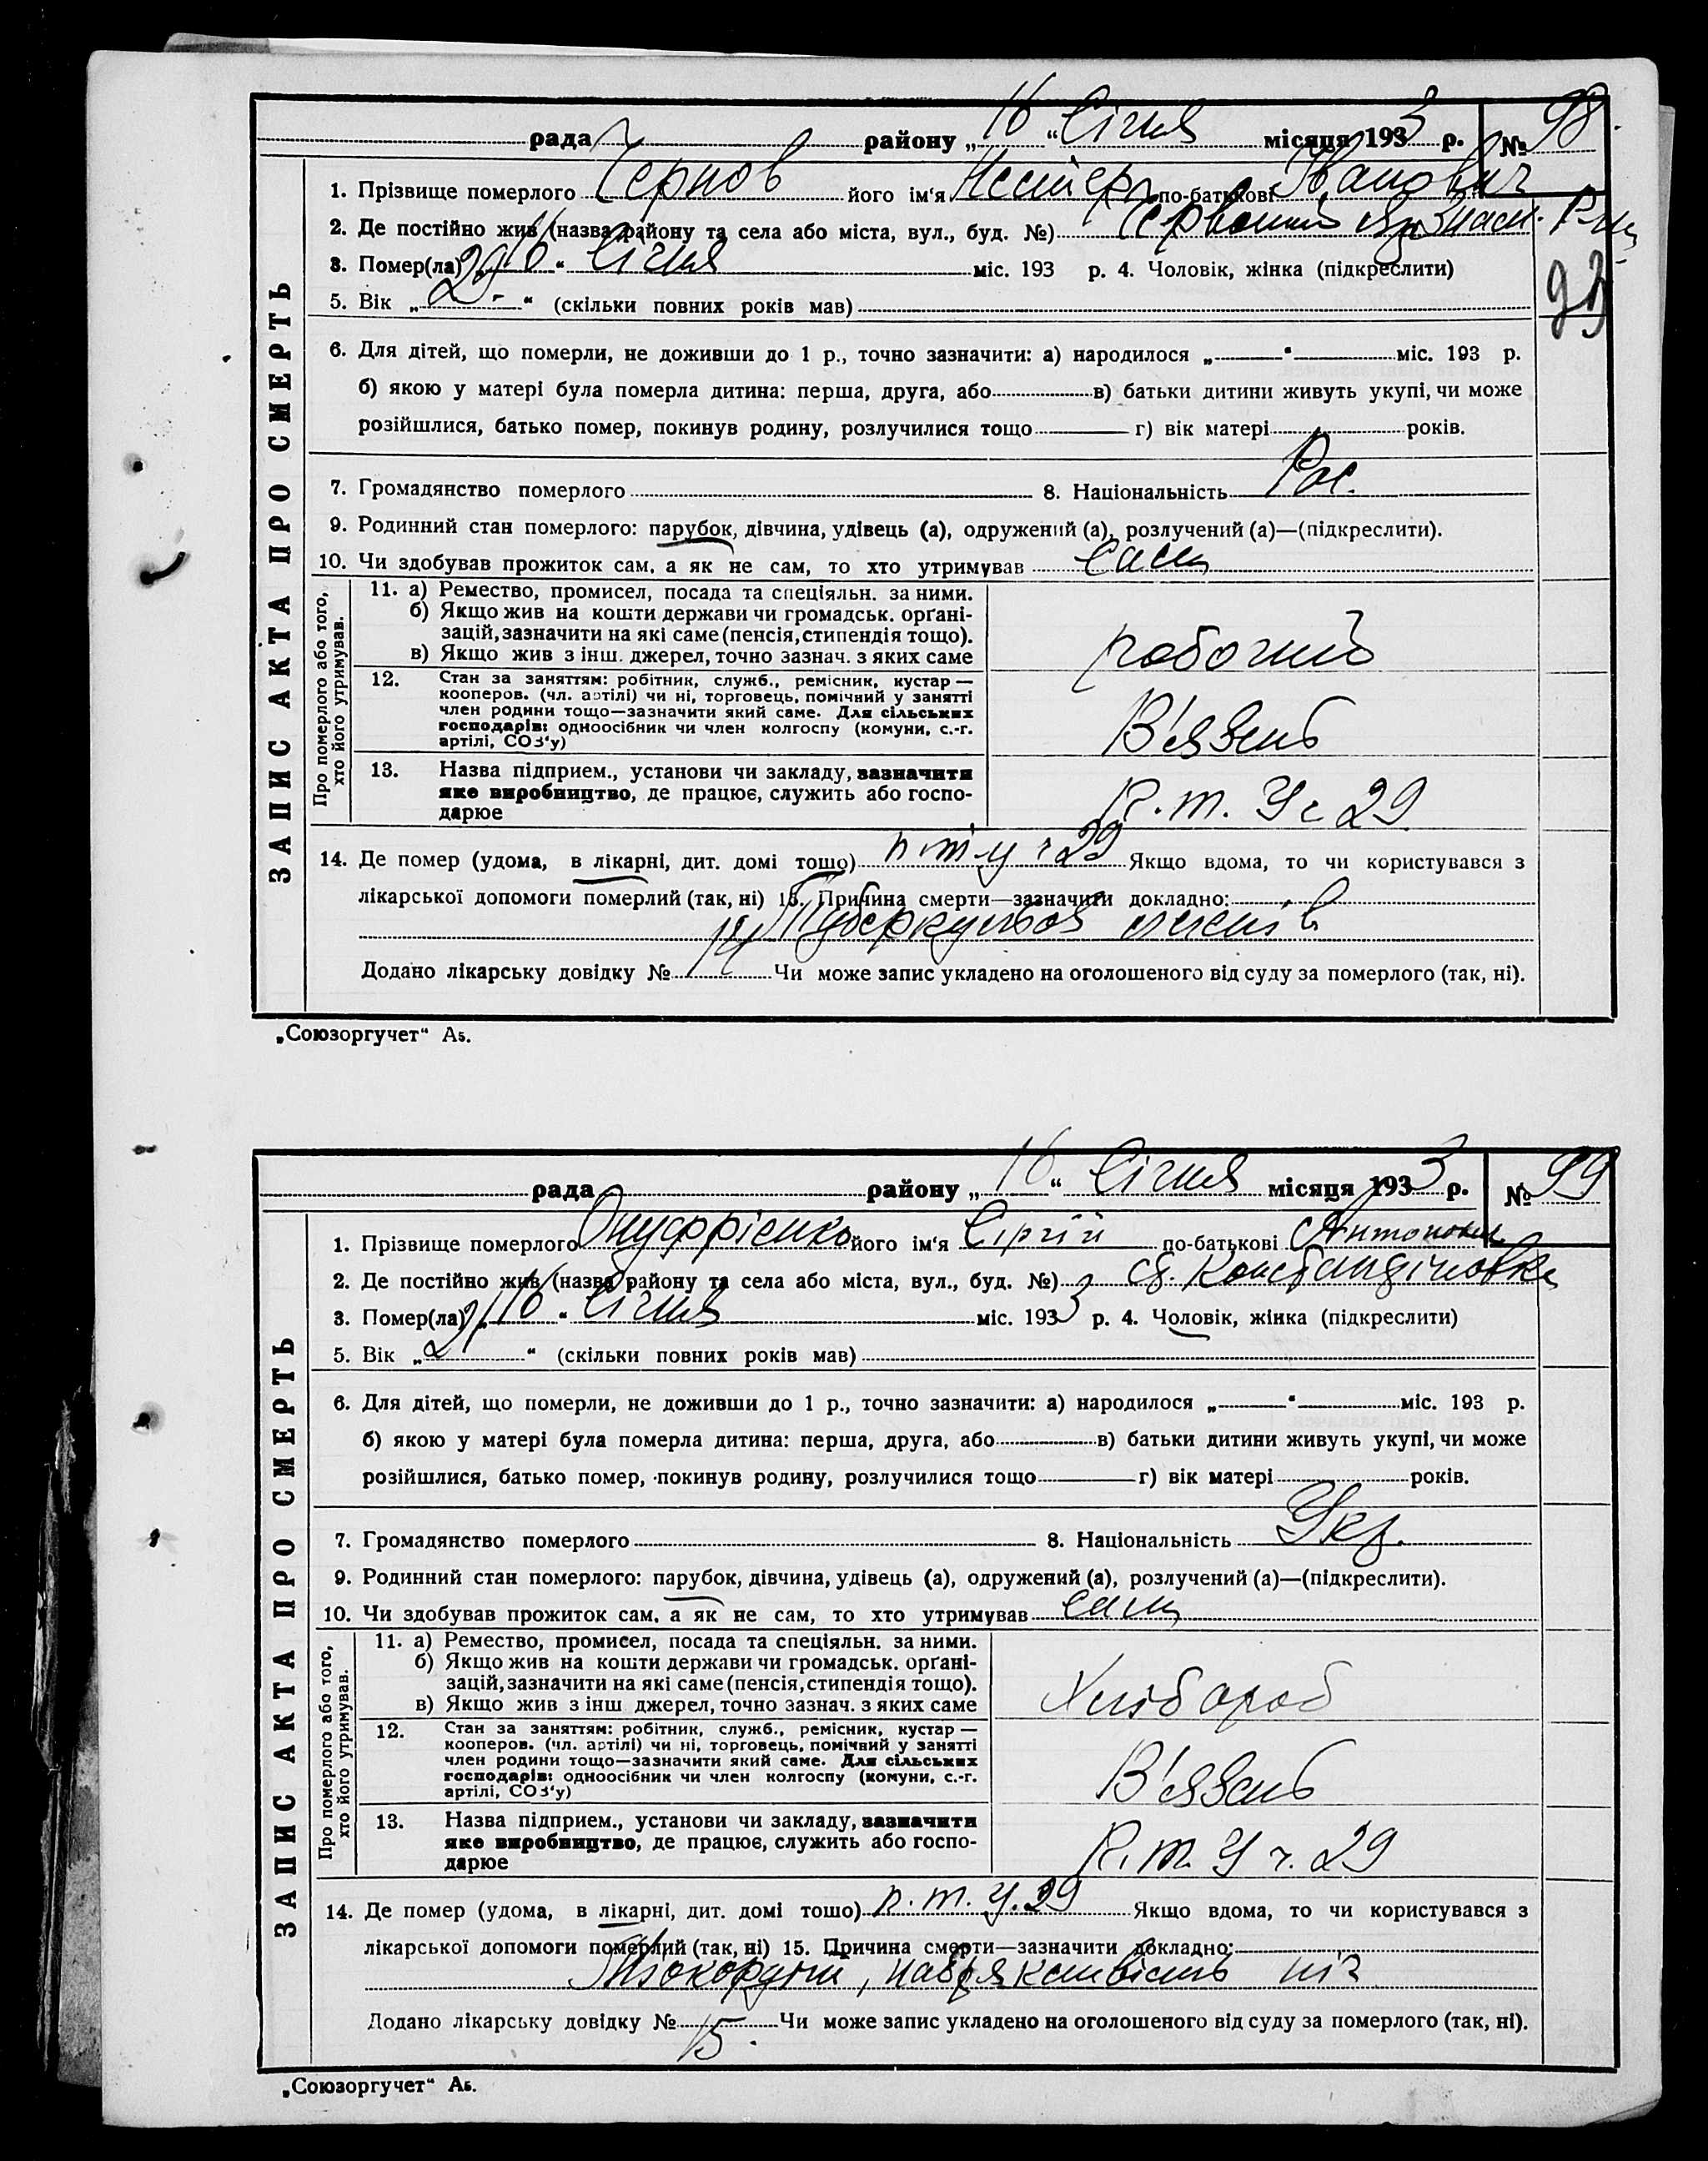 рада району „16“ Січня місяця 1933 р. № 98.
ЗАПИС АКТА ПРО СМЕРТЬ
1. Прізвище померлого Чернов його ім'я Нестер по-батькові Іванович
2. Де постійно жив (назва району та села або міста, вул., буд. №) Червоний
3. Помер(ла) „16“ Січня міс. 193 р. 4. Чоловік, жінка (підкреслити)
5. Вік „29.“ (скільки повних років мав)
93
6. Для дітей, що померли, не доживши до 1 р., точно зазначити: а) народилося „—“ міс. 193 р.
б) якою у матері була померла дитина: перша, друга, або в) батьки дитини живуть укупі, чи може
розійшлися, батько помер, покинув родину, розлучилися тощо г) вік матері років.
7. Громадянство померлого 8. Національність Рос.
9. Родинний стан померлого: парубок, дівчина, удівець (а), одружений (а), розлучений (а)—(підкреслити).
10. Чи здобував прожиток сам, а як не сам, то хто утримував сам
Про померлого або того, хто його утримував.
11. а) Ремество, промисел, посада та спеціяльн. за ними.
б) Якщо жив на кошти держави чи громадськ. орґані-
зацій, зазначити на які саме (пенсія, стипендія тощо).
в) Якщо жив з інш. джерел, точно зазнач. з яких саме
робочий
12. Стан за заняттям: робітник, служб., ремісник, кустар —
кооперов. (чл. артілі) чи ні, торговець, помічний у занятті
член родини тощо—зазначити який саме. Для сільських
господарів: одноосібник чи член колгоспу (комуни, с.-г.
артілі, СОЗ'у)
В'язень
13. Назва підприєм., установи чи закладу, зазначити
яке виробництво, де працює, служить або госпо-
дарює
П. т. У ч 29
14. Де помер (удома, в лікарні, дит. домі тощо) п т у ч 29 Якщо вдома, то чи користувався з
лікарської допомоги померлий (так, ні) 15. Причина смерти—зазначити докладно:
Туберкульоз легенів
Додано лікарську довідку № 14 Чи може запис укладено на оголошеного від суду за померлого (так, ні).
„Союзоргучет“ А5.
рада району „16“ Січня місяця 1933 р. № 99
ЗАПИС АКТА ПРО СМЕРТЬ
1. Прізвище померлого Онуфрієнко його ім'я Сергій по-батькові Антонович
2. Де постійно жив (назва району та села або міста, вул., буд. №) с. Констандіновка
3. Помер(ла) „16“ Січня міс. 1933 р. 4. Чоловік, жінка (підкреслити)
5. Вік „21“ (скільки повних років мав)
6. Для дітей, що померли, не доживши до 1 р., точно зазначити: а) народилося „—“ міс. 193 р.
б) якою у матері була померла дитина: перша, друга, або в) батьки дитини живуть укупі, чи може
розійшлися, батько помер, покинув родину, розлучилися тощо г) вік матері років.
7. Громадянство померлого 8. Національність Укр.
9. Родинний стан померлого: парубок, дівчина, удівець (а), одружений (а), розлучений (а)—(підкреслити).
10. Чи здобував прожиток сам, а як не сам, то хто утримував сам
Про померлого або того, хто його утримував.
11. а) Ремество, промисел, посада та спеціяльн. за ними.
б) Якщо жив на кошти держави чи громадськ. орґані-
зацій, зазначити на які саме (пенсія, стипендія тощо).
в) Якщо жив з інш джерел, точно зазнач. з яких саме
Хлібороб
12. Стан за заняттям: робітник, служб., ремісник, кустар —
кооперов. (чл. артілі) чи ні, торговець, помічний у занятті
член родини тощо—зазначити який саме. Для сільських
господарів: одноосібник чи член колгоспу (комуни, с.-г.
артілі, СОЗ'у)
В'язень
13. Назва підприєм., установи чи закладу, зазначити
яке виробництво, де працює, служить або госпо-
дарює
П. т. У ч. 29
14. Де помер (удома, в лікарні, дит. домі тощо) п. т. у. 29 Якщо вдома, то чи користувався з
лікарської допомоги померлий (так, ні) 15. Причина смерти—зазначити докладно:
Міокордит, ніг
Додано лікарську довідку № 15. Чи може запис укладено на оголошеного від суду за померлого (так, ні).
„Союзоргучет“ А5.